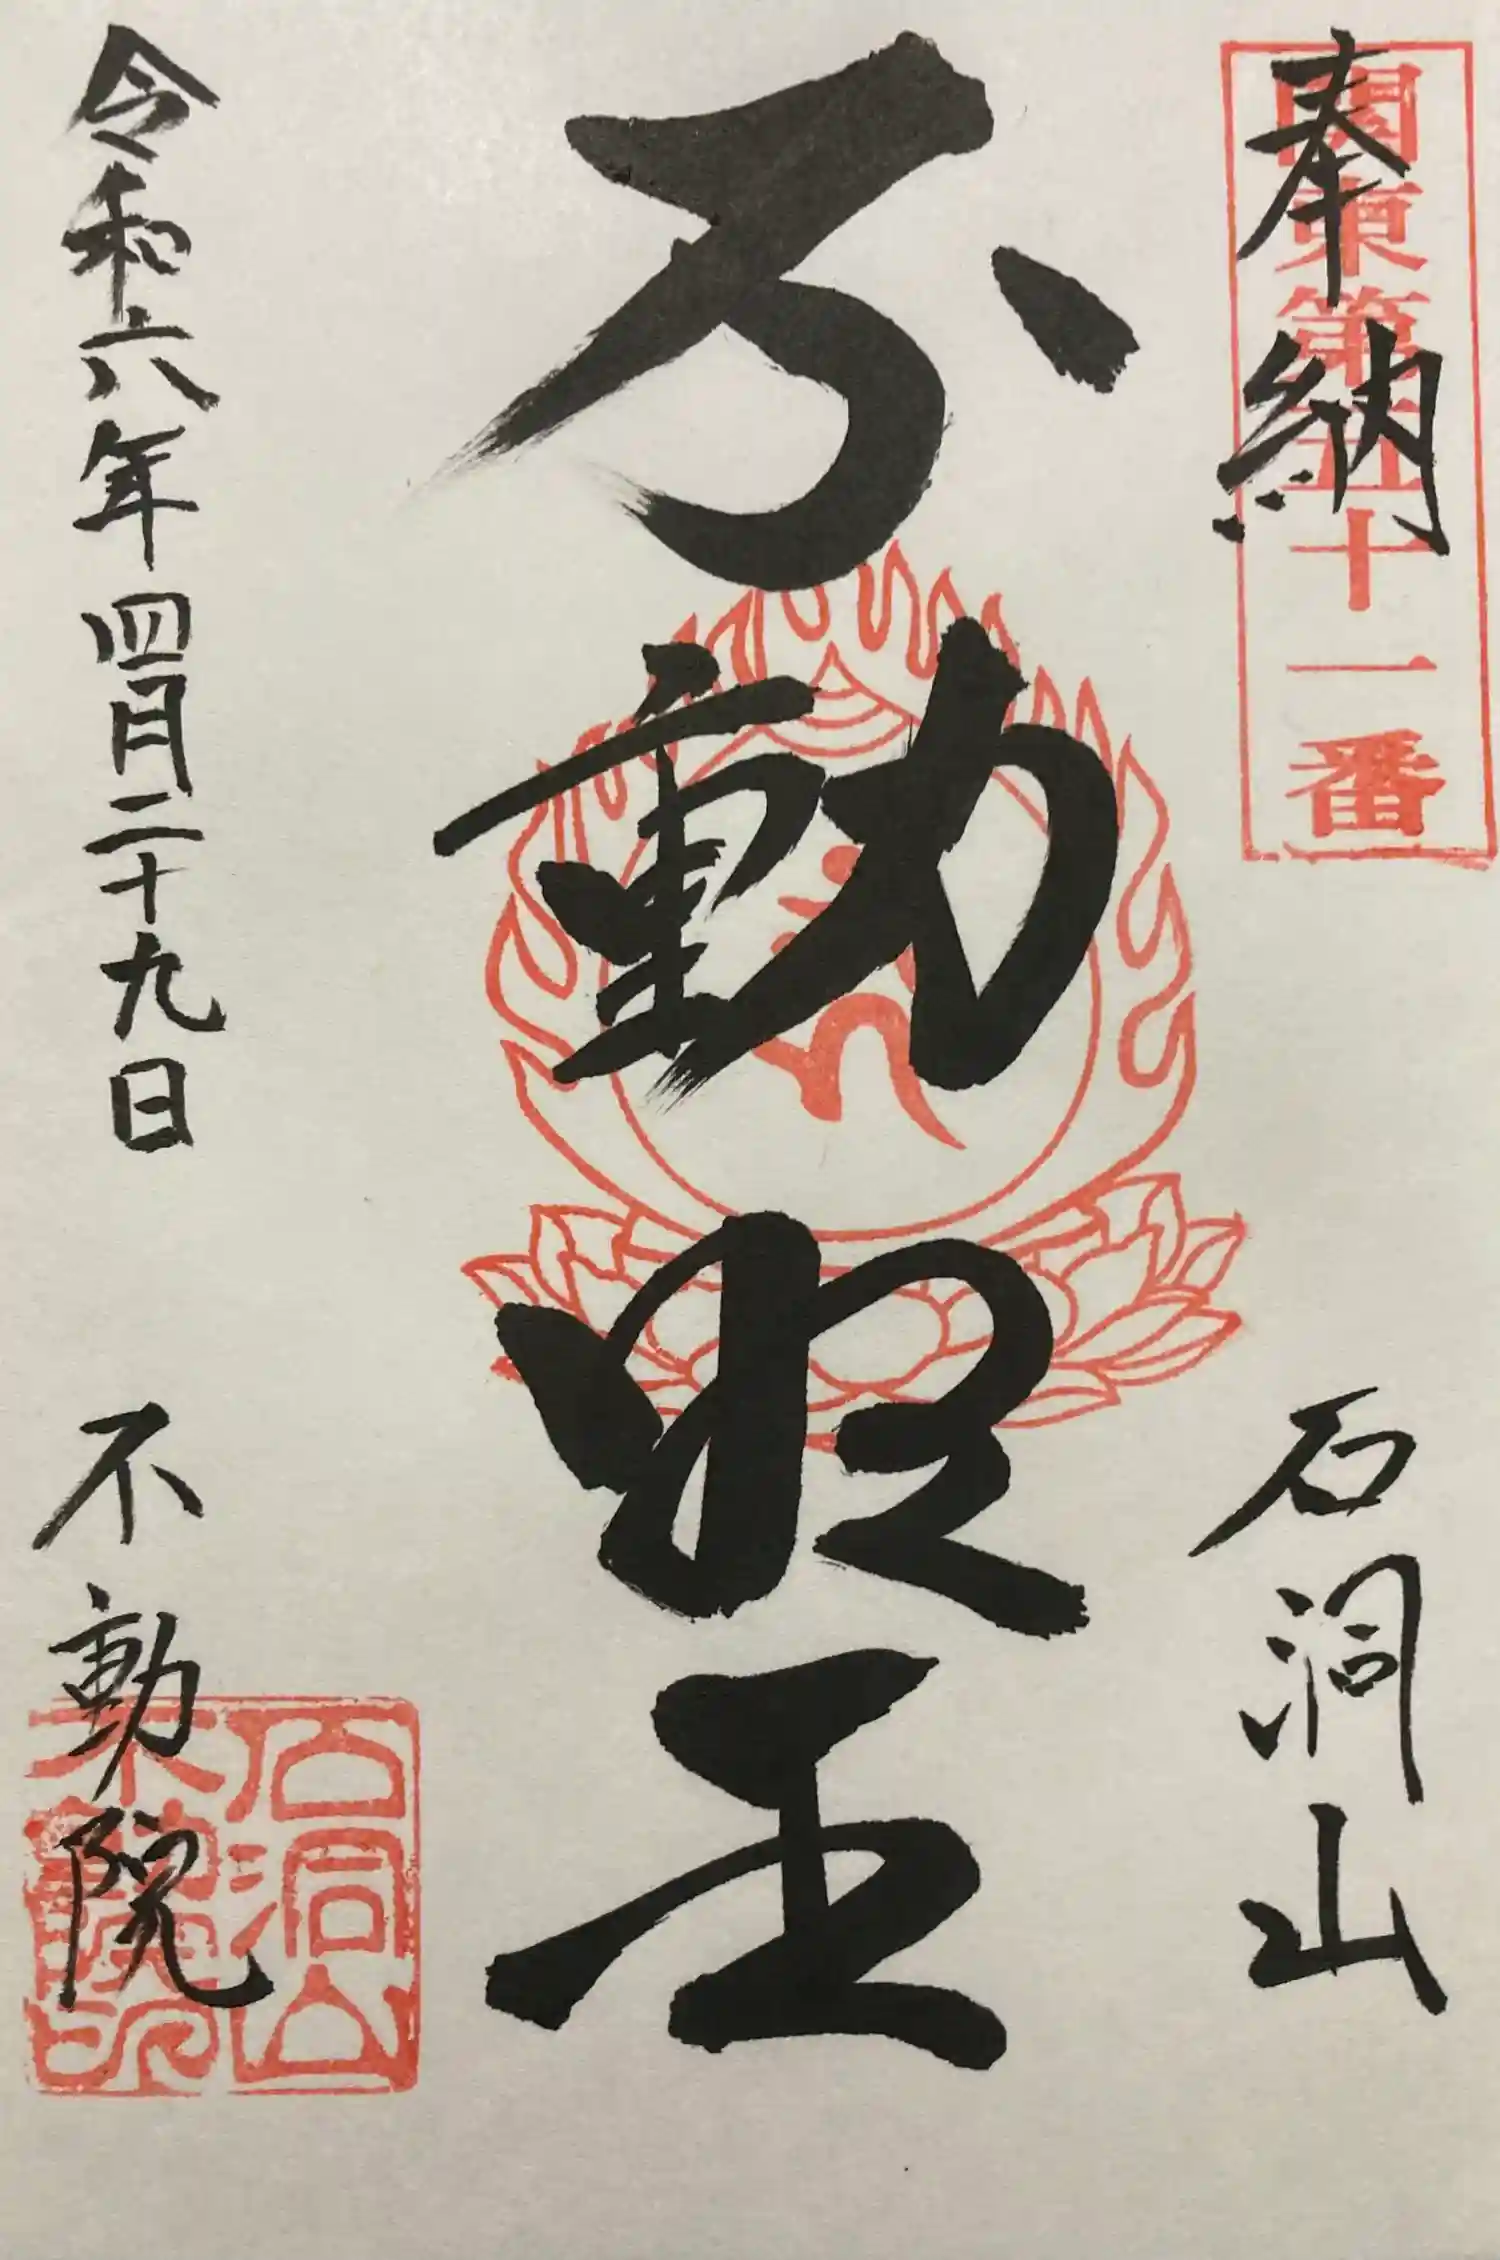 奉納
関東第五十一番
石洞山
不動明王
令和六年四月二十九日
不動院
石洞山